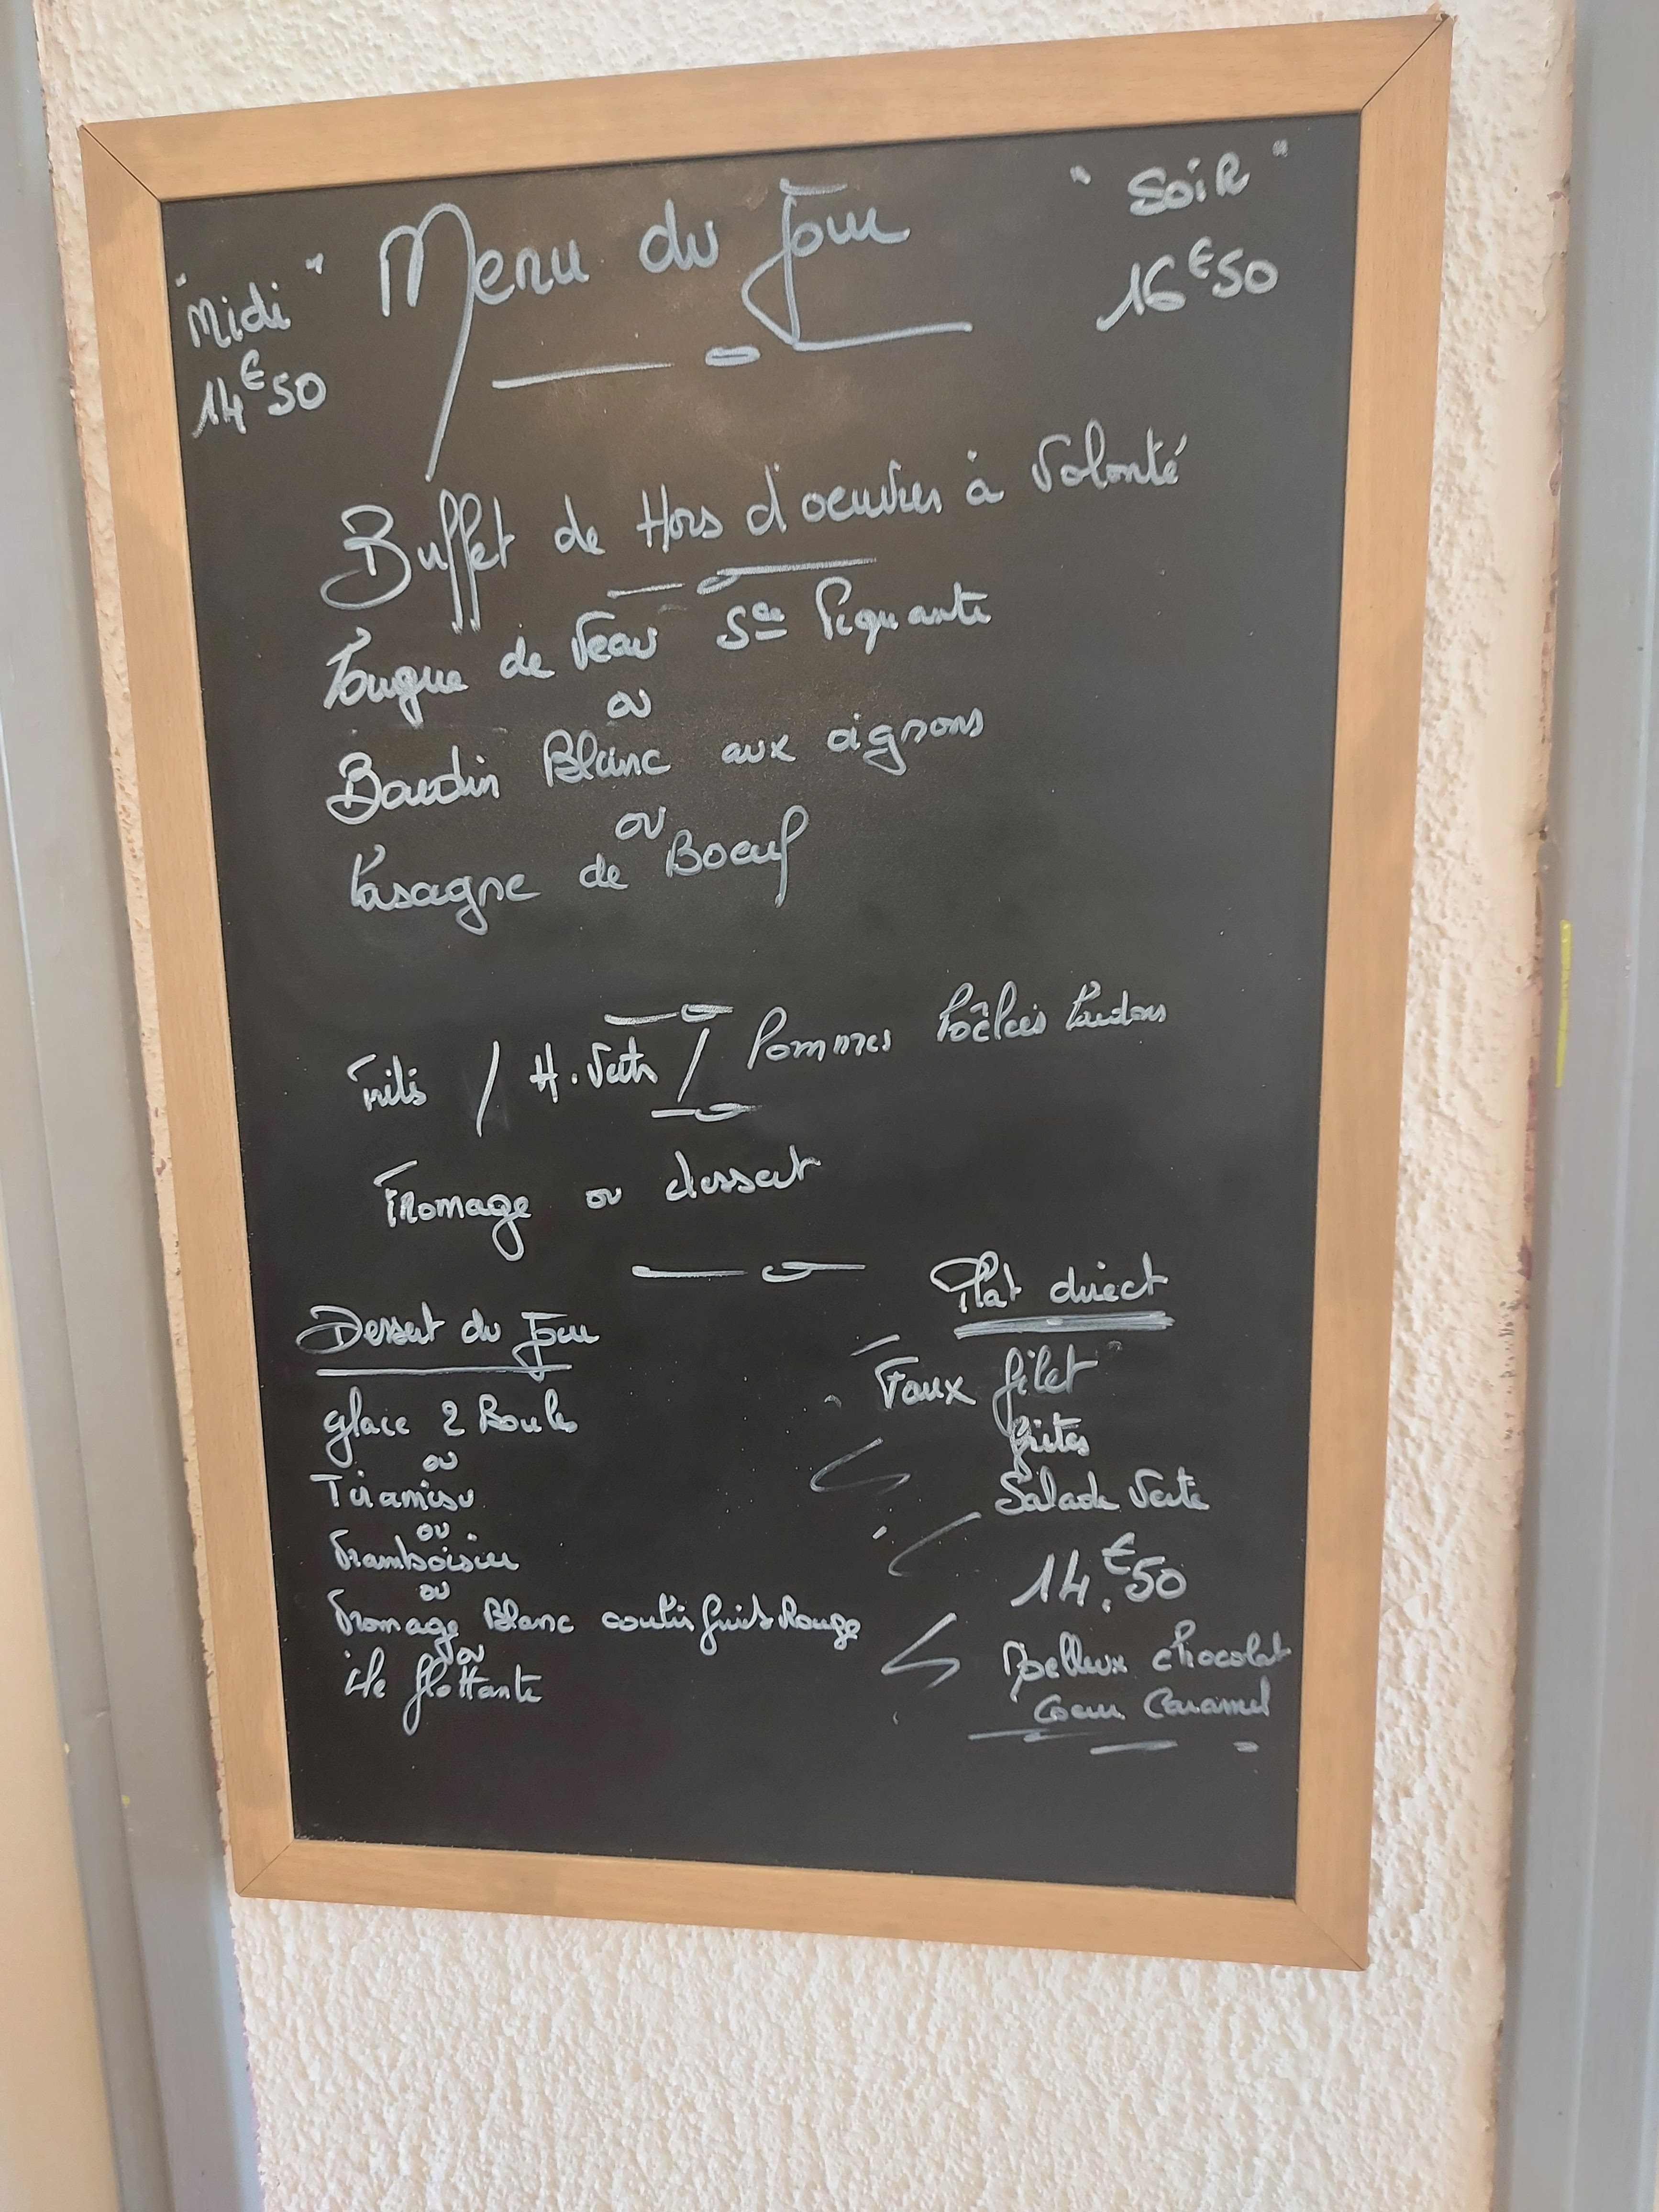 Menu du Jour
"Midi"
14€50
"SOIR"
16€50
Buffet de Hors d'oeuvres à Volonté
Langue de Veau Sce Piquante
ou
Boudin Blanc aux oignons
ou
Lasagne de Boeuf
Frites / H. Verts / Pommes Poêlées Lardons
Fromage ou dessert
Dessert du Jour
glace 2 Boules
ou
Tiramisu
ou
Framboisier
ou
Fromage Blanc coulis fruits Rouge
ou
île flottante
Plat direct
Faux filet
frites
Salade Verte
14.€50
Moelleux chocolat
Coeur Caramel